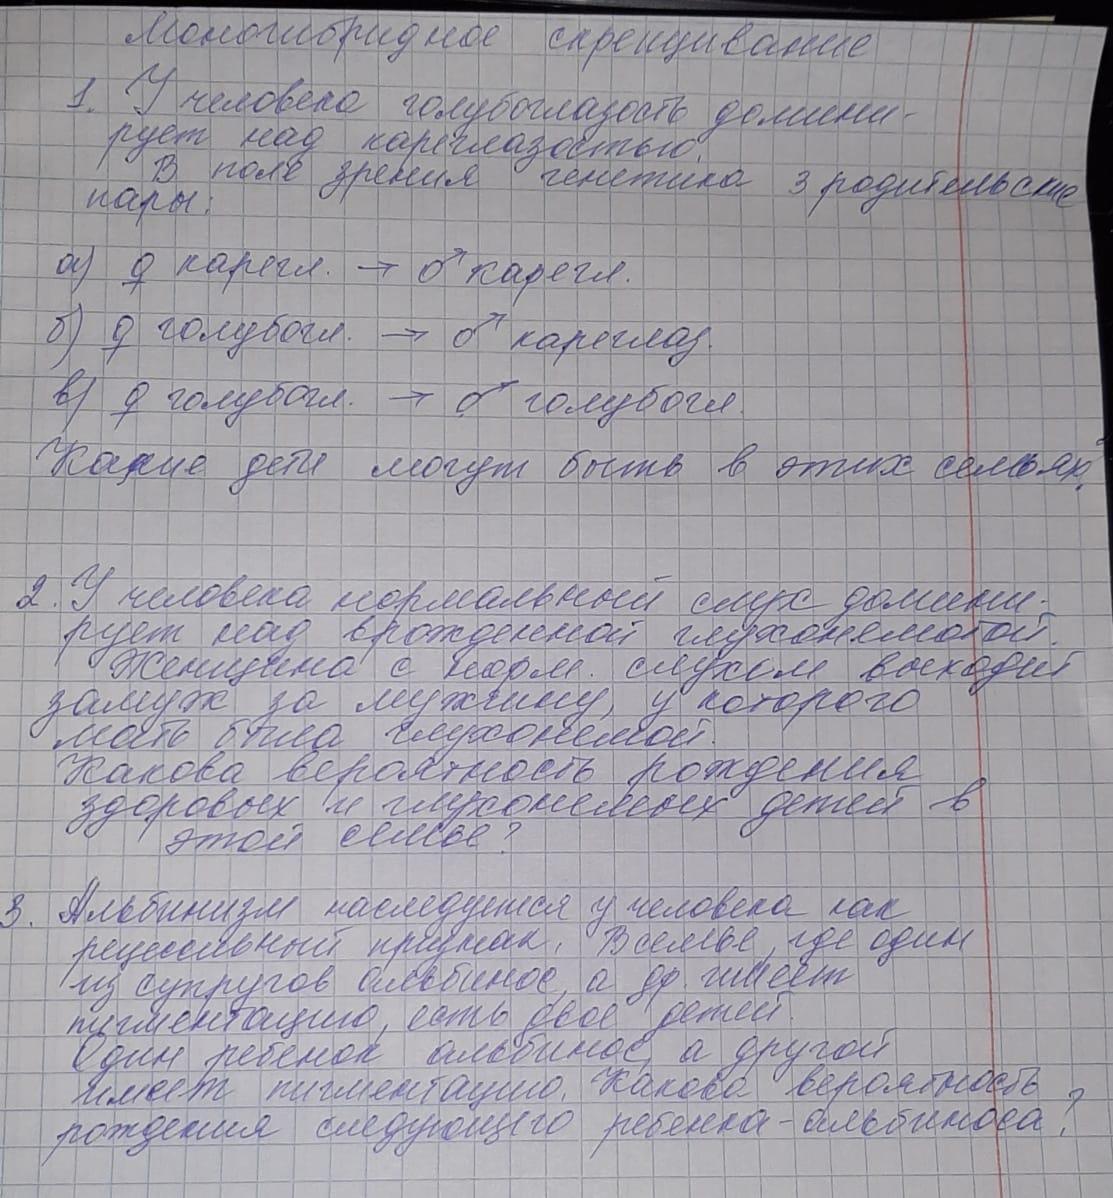 Моногибридное скрещивание
1. У человека голубоглазость домини-
рует над кареглазостью.
В поле зрения генетика 3 родительские
пары:
а) ♀ карегл. → ♂ карегл.
б) ♀ голубогл. → ♂ кареглаз.
в) ♀ голубогл. → ♂ голубогл.
Какие дети могут быть в этих семьях?
2. У человека нормальный слух домини-
рует над врожденной глухонемотой.
Женщина с норм. слухом выходит
замуж за мужчину, у которого
мать была глухонемой.
Какова вероятность рождения
здоровых и глухонемых детей в
этой семье?
3. Альбинизм наследуется у человека как
рецессивный признак. В семье, где один
из супругов альбинос, а др. имеет
пигментацию, есть двое детей.
Один ребенок альбинос, а другой
имеет пигментацию. Какова вероятность
рождения следующего ребенка-альбиноса?